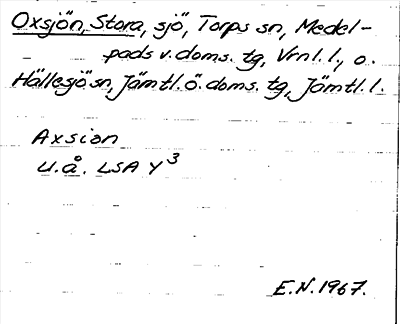 Oxsjön, Stora, sjö, Torps sn, Medel-
pads v. doms. tg, Vrnl. l., o.
Hällesjö sn, Jämtl. ö. doms. tg, Jämtl. l.
Axsion
U.å. LSA Y3
E.N. 1967.